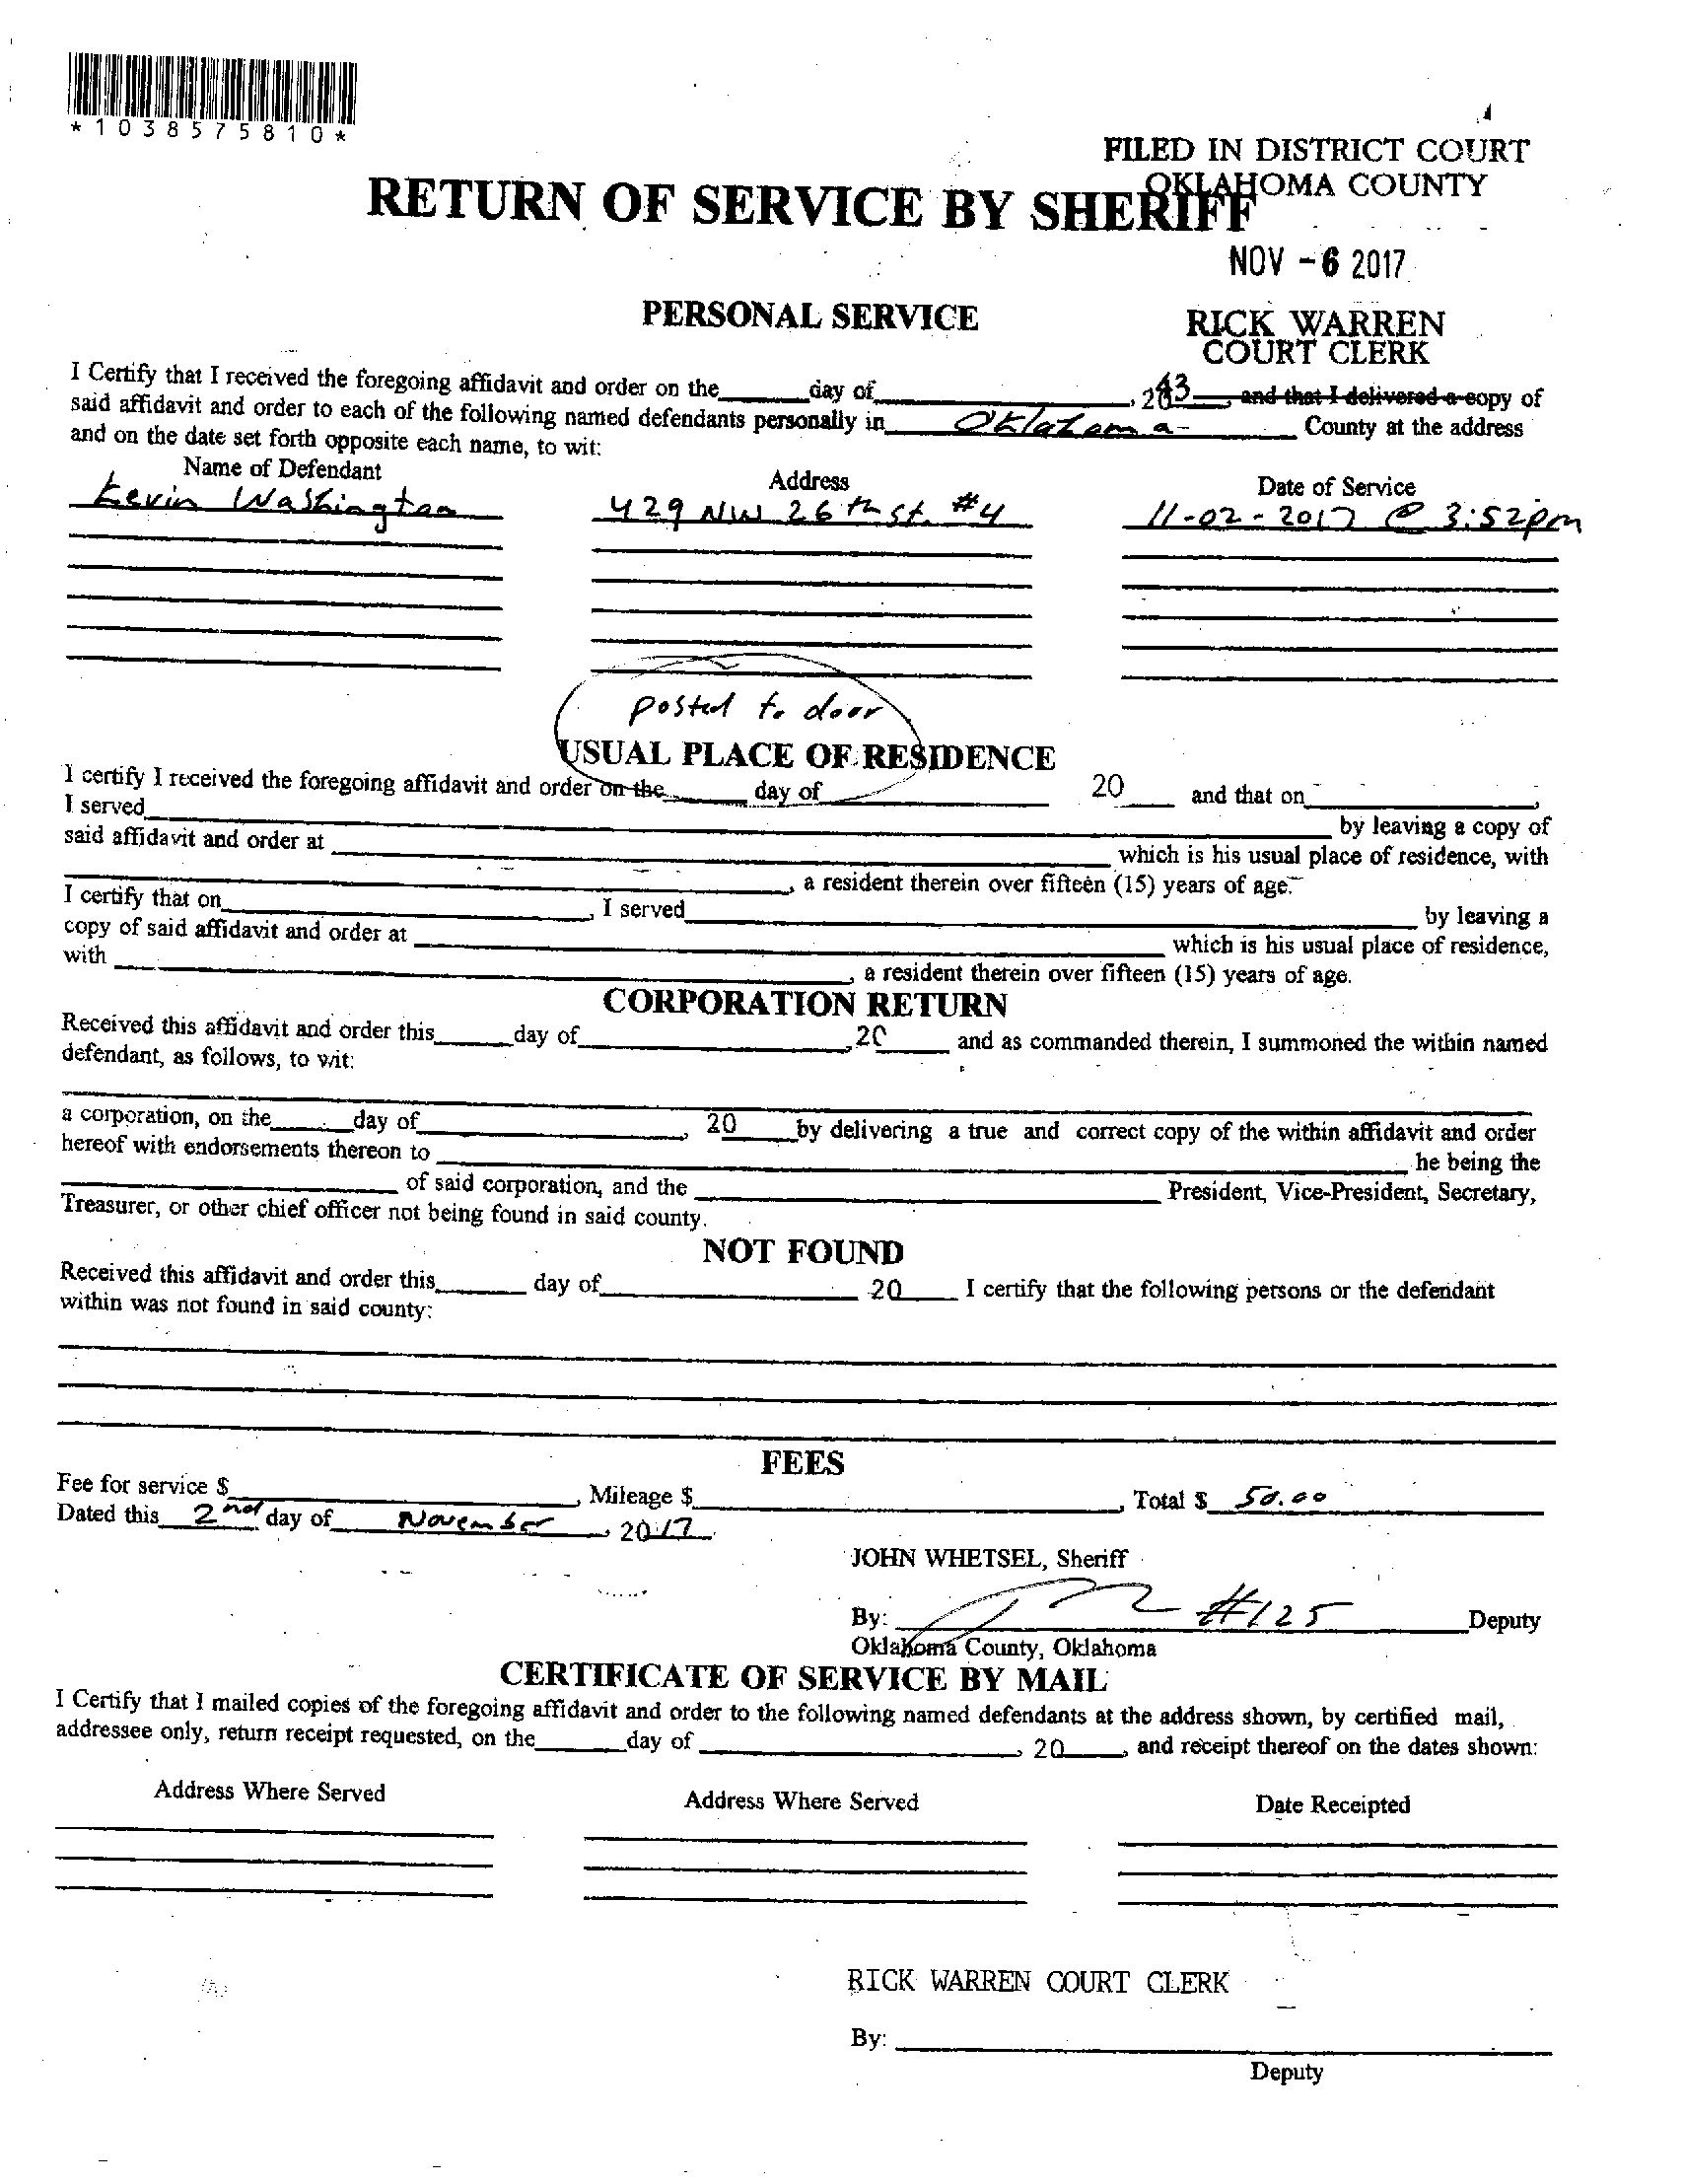 *1038575810*
FILED IN DISTRICT COURT
OKLAHOMA COUNTY
RETURN OF SERVICE BY SHERIFF
NOV -6 2017
PERSONAL SERVICE
RICK WARREN
COURT CLERK
I Certify that I received the foregoing affidavit and order on the ______ day of ______, and that I delivered a copy of
said affidavit and order to each of the following named defendants personally in Oklahoma County at the address
and on the date set forth opposite each name, to wit:
Name of Defendant Address Date of Service
Kevin Washington 429 NW 26th St. #4 11-02-2017 @ 3:52pm
posted to door
USUAL PLACE OF RESIDENCE
I certify I received the foregoing affidavit and order on the ______ day of ______ 20____ and that on ______,
I served ______ by leaving a copy of
said affidavit and order at ______ which is his usual place of residence, with
______, a resident therein over fifteen (15) years of age.
I certify that on ______, I served ______ by leaving a
copy of said affidavit and order at ______ which is his usual place of residence,
with ______, a resident therein over fifteen (15) years of age.
CORPORATION RETURN
Received this affidavit and order this ______ day of ______, 20____ and as commanded therein, I summoned the within named
defendant, as follows, to wit:
a corporation, on the ______ day of ______, 20____ by delivering a true and correct copy of the within affidavit and order
hereof with endorsements thereon to ______ he being the
______ of said corporation, and the ______ President, Vice-President, Secretary,
Treasurer, or other chief officer not being found in said county.
NOT FOUND
Received this affidavit and order this ______ day of ______ 20____ I certify that the following persons or the defendant
within was not found in said county:
FEES
Fee for service $______, Mileage $______, Total $ 50.00
Dated this 2nd day of November, 2017
JOHN WHETSEL, Sheriff
By: ______ #125 Deputy
Oklahoma County, Oklahoma
CERTIFICATE OF SERVICE BY MAIL
I Certify that I mailed copies of the foregoing affidavit and order to the following named defendants at the address shown, by certified mail,
addressee only, return receipt requested, on the ______ day of ______, 20____, and receipt thereof on the dates shown:
Address Where Served Address Where Served Date Receipted
RICK WARREN COURT CLERK
By: ______
Deputy